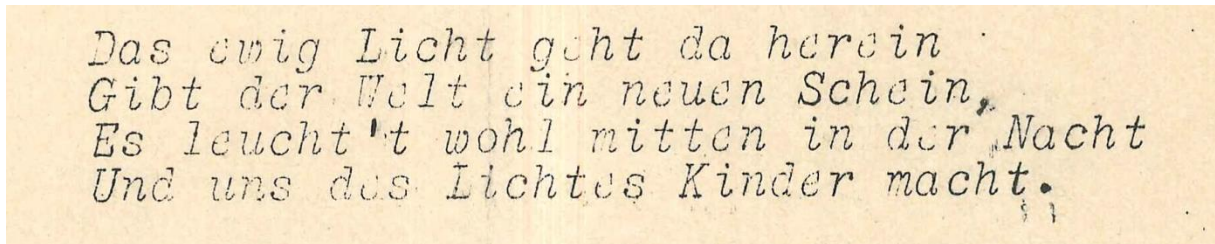 Das ewig Licht geht da herein
Gibt der Welt ein neuen Schein,
Es leucht't wohl mitten in der Nacht
Und uns des Lichtes Kinder macht.